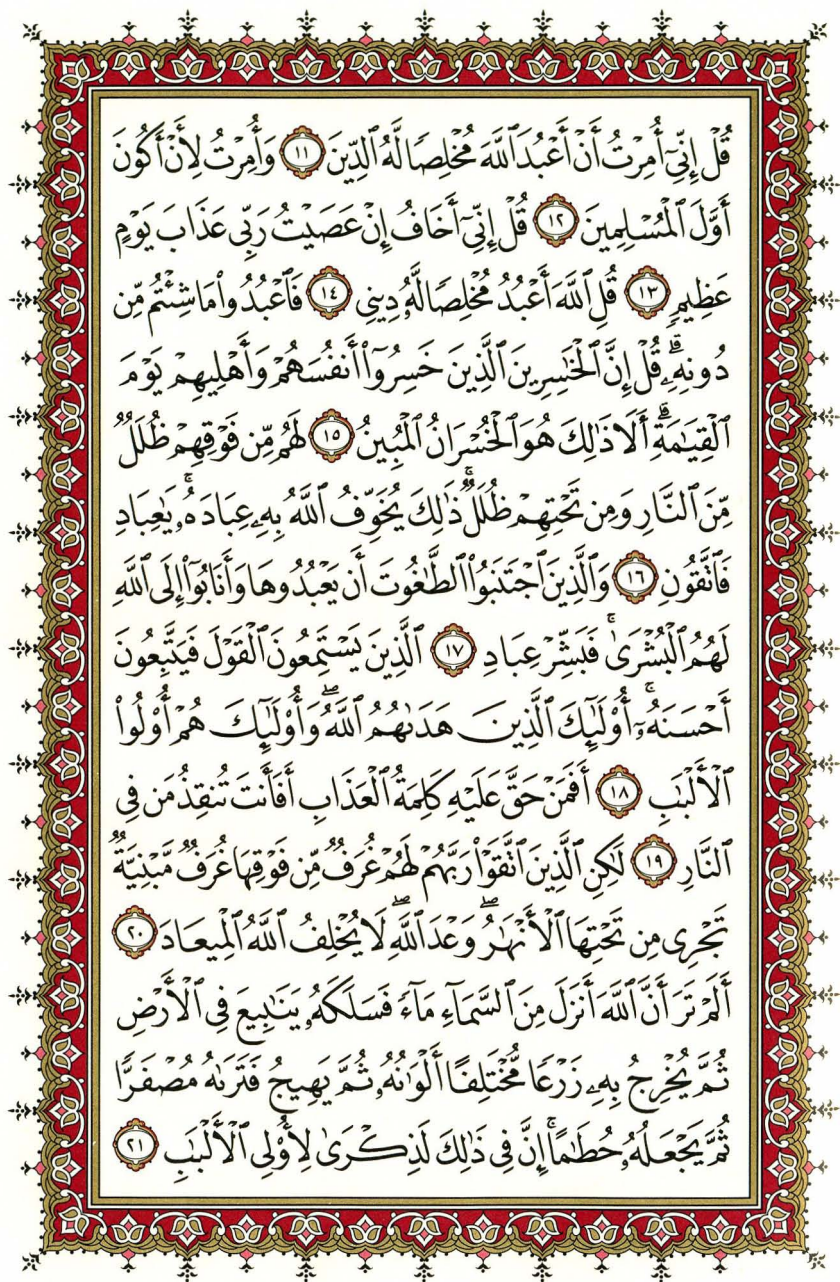 قُلْ إِنِّىٓ أُمِرْتُ أَنْ أَعْبُدَ ٱللَّهَ مُخْلِصًا لَّهُ ٱلدِّينَ ١١ وَأُمِرْتُ لِأَنْ أَكُونَ
أَوَّلَ ٱلْمُسْلِمِينَ ١٢ قُلْ إِنِّىٓ أَخَافُ إِنْ عَصَيْتُ رَبِّى عَذَابَ يَوْمٍ
عَظِيمٍ ١٣ قُلِ ٱللَّهَ أَعْبُدُ مُخْلِصًا لَّهُۥ دِينِى ١٤ فَٱعْبُدُوا۟ مَا شِئْتُم مِّن
دُونِهِۦ ۗ قُلْ إِنَّ ٱلْخَٰسِرِينَ ٱلَّذِينَ خَسِرُوٓا۟ أَنفُسَهُمْ وَأَهْلِيهِمْ يَوْمَ
ٱلْقِيَٰمَةِ ۗ أَلَا ذَٰلِكَ هُوَ ٱلْخُسْرَانُ ٱلْمُبِينُ ١٥ لَهُم مِّن فَوْقِهِمْ ظُلَلٌ
مِّنَ ٱلنَّارِ وَمِن تَحْتِهِمْ ظُلَلٌ ۚ ذَٰلِكَ يُخَوِّفُ ٱللَّهُ بِهِۦ عِبَادَهُۥ ۚ يَٰعِبَادِ
فَٱتَّقُونِ ١٦ وَٱلَّذِينَ ٱجْتَنَبُوا۟ ٱلطَّٰغُوتَ أَن يَعْبُدُوهَا وَأَنَابُوٓا۟ إِلَى ٱللَّهِ
لَهُمُ ٱلْبُشْرَىٰ ۚ فَبَشِّرْ عِبَادِ ١٧ ٱلَّذِينَ يَسْتَمِعُونَ ٱلْقَوْلَ فَيَتَّبِعُونَ
أَحْسَنَهُۥٓ ۚ أُو۟لَٰٓئِكَ ٱلَّذِينَ هَدَىٰهُمُ ٱللَّهُ ۖ وَأُو۟لَٰٓئِكَ هُمْ أُو۟لُوا۟
ٱلْأَلْبَٰبِ ١٨ أَفَمَنْ حَقَّ عَلَيْهِ كَلِمَةُ ٱلْعَذَابِ أَفَأَنتَ تُنقِذُ مَن فِى
ٱلنَّارِ ١٩ لَٰكِنِ ٱلَّذِينَ ٱتَّقَوْا۟ رَبَّهُمْ لَهُمْ غُرَفٌ مِّن فَوْقِهَا غُرَفٌ مَّبْنِيَّةٌ
تَجْرِى مِن تَحْتِهَا ٱلْأَنْهَٰرُ ۖ وَعْدَ ٱللَّهِ ۖ لَا يُخْلِفُ ٱللَّهُ ٱلْمِيعَادَ ٢٠
أَلَمْ تَرَ أَنَّ ٱللَّهَ أَنزَلَ مِنَ ٱلسَّمَآءِ مَآءً فَسَلَكَهُۥ يَنَٰبِيعَ فِى ٱلْأَرْضِ
ثُمَّ يُخْرِجُ بِهِۦ زَرْعًا مُّخْتَلِفًا أَلْوَٰنُهُۥ ثُمَّ يَهِيجُ فَتَرَىٰهُ مُصْفَرًّا
ثُمَّ يَجْعَلُهُۥ حُطَٰمًا ۚ إِنَّ فِى ذَٰلِكَ لَذِكْرَىٰ لِأُو۟لِى ٱلْأَلْبَٰبِ ٢١